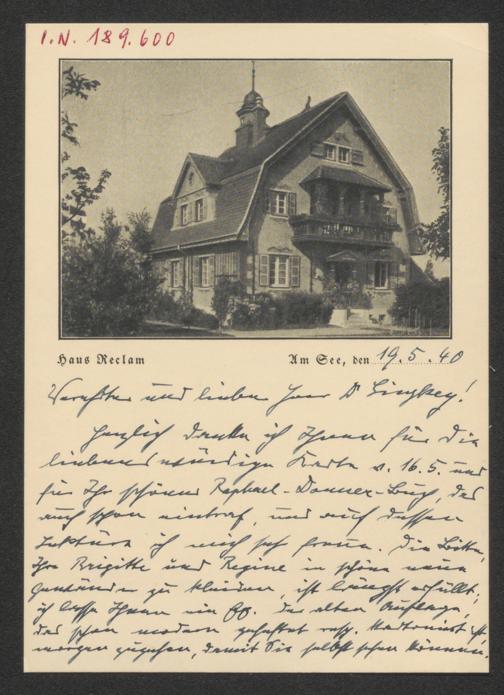 I.N. 189.600
Haus Reclam
Am See, den 19.5.40
Verehrter und lieber Herr D
Herzlich danke ich Ihnen für die
liebenswürdige Karte v. 16.5. und
für Ihr schönes Raphael-Donner-Buch, das
auch schon eintraf, und auf dessen
Lektüre ich mich sehr freue. Die Bitte,
Ihre Brigitte und Regine in schöne neue
Gewänder zu kleiden, ist längst erfüllt;
ich lasse Ihnen ein der alten Auflage,
das schon modern geheftet
morgen zugehen, damit Sie selbst sehen können,